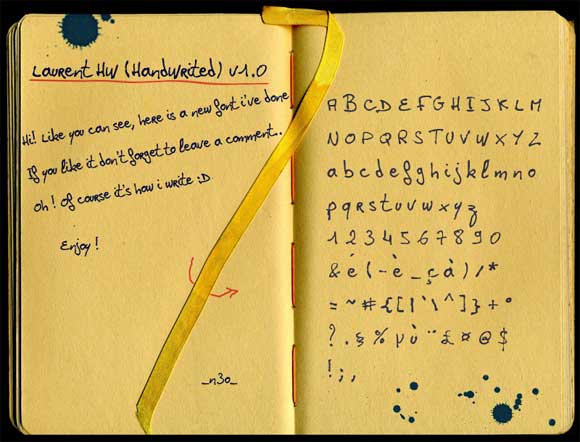 Laurent HW (Handwrited) v1.0
Hi! Like you can see, here is a new font i've done
If you like it don't forget to leave a comment..
Oh ! Of course it's how i write :D
Enjoy !
_n3o_
A B C D E F G H I J K L M
N O P Q R S T U V W X Y Z
a b c d e f g h i j k l m n o
p q r s t u v w x y z
1 2 3 4 5 6 7 8 9 0
& é ( - è _ ç à ) / *
= ~ # { [ | ` \ ^ ] } + °
? . § % µ ù ¨ £ ¤ @ $
! ; ,